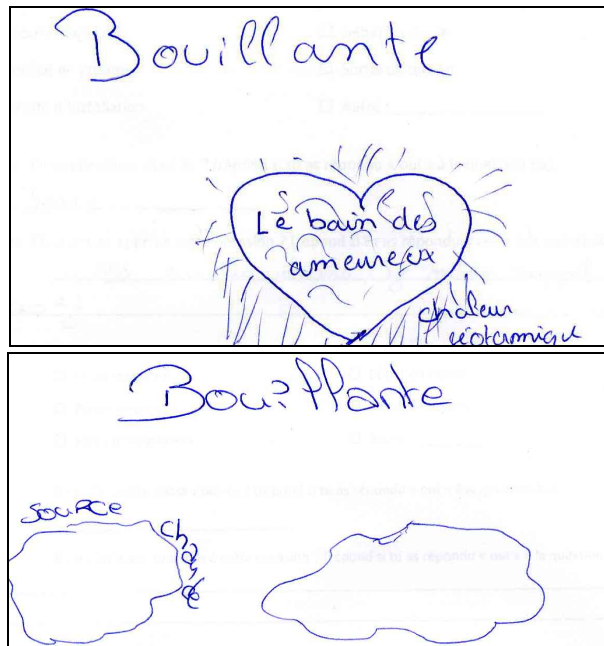 Bouillante
Le bain des
ameureux
chaleur
Bouillante
SOURCE
chaude